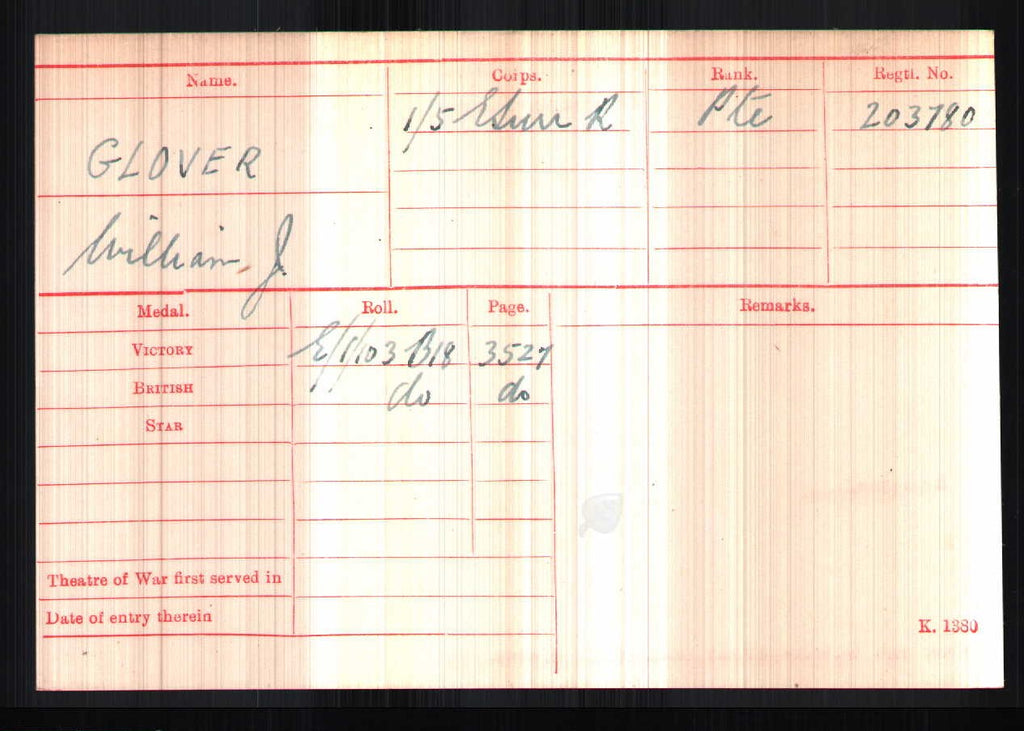 Name. Corps. Rank. Regtl. No.
1/5 E Surr R Pte 203780
GLOVER
William J.
Medal. Roll. Page. Remarks.
VICTORY E/1/103 B18 3527
BRITISH do do
STAR
Theatre of War first served in
Date of entry therein
K. 1380